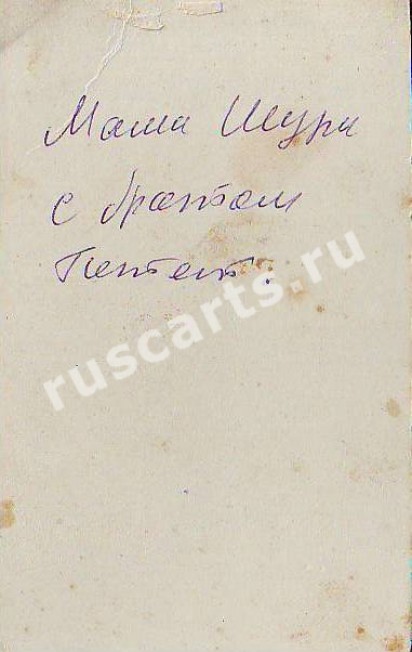 Мама Шуры
с братом
Петей.
ruscarts.ru